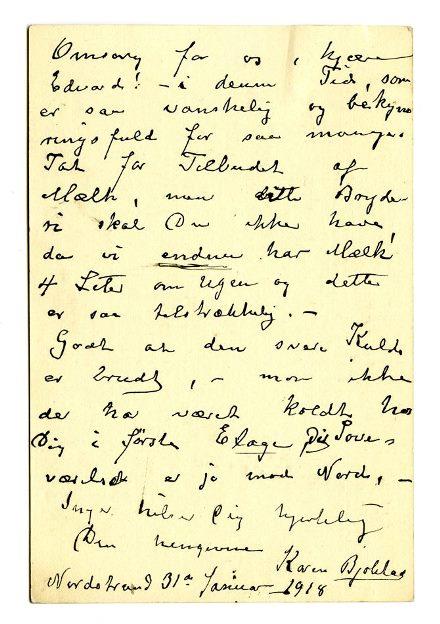 Omsorg for os, kjære
Edvard! – i denne Tid, som
er saa vanskelig og bekym
ringsfuld for saa mange.
Tak for Tilbudet af
Mælk, men dette Bryde
ri skal Du ikke have,
da vi endnu har Mælk
4 Liter om Ugen og dette
er saa tilstrækkelig. –
Godt at den svære Kulde
er brudt, – mon ikke
der har været koldt hos
Dig i første Etage, Dit Sove-
værelse er jo mod Nord, –
Inger hilser Dig hjertelig
Din hengivne
Karen Bjølstad
Nordstrand 31te Januar 1918